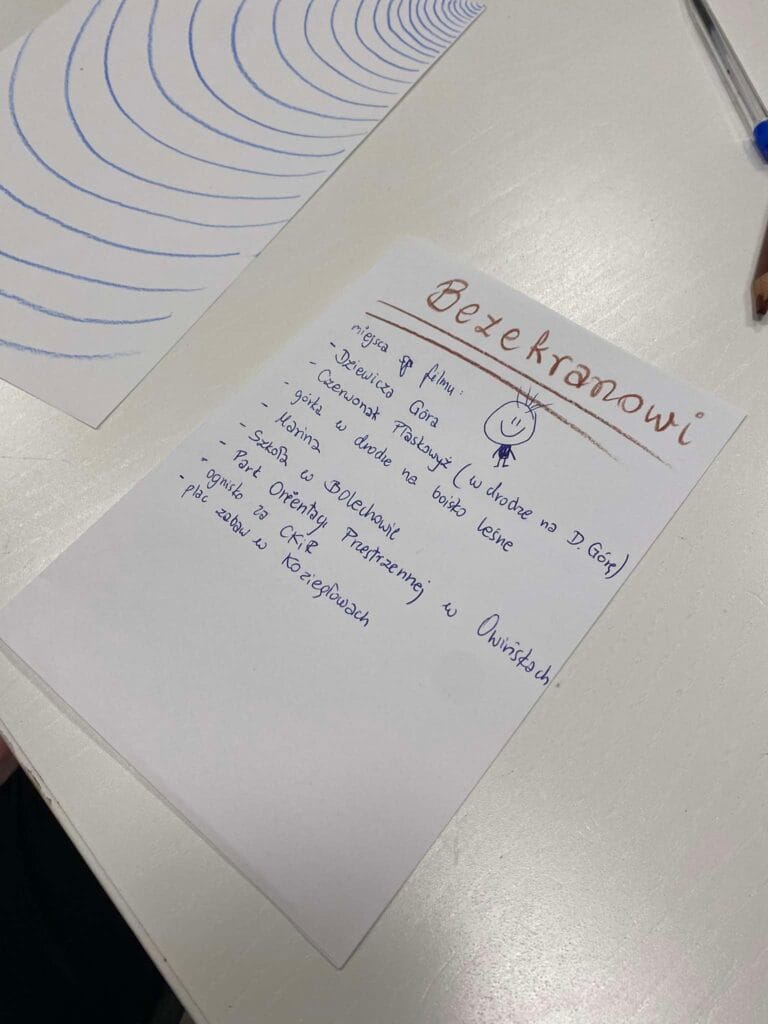 Bezekranowi
miejsca filmu:
- Dziewicza Góra
- Czerwonak Płaskowyż (w drodze na D. Górę)
- górka w drodze na boisko leśne
- Marina
- Szkoła w Bolechowie
- Park Orientacji Przestrzennej w Owińskach
- ognisko za CKiR
- plac zabaw w Koziegłowach